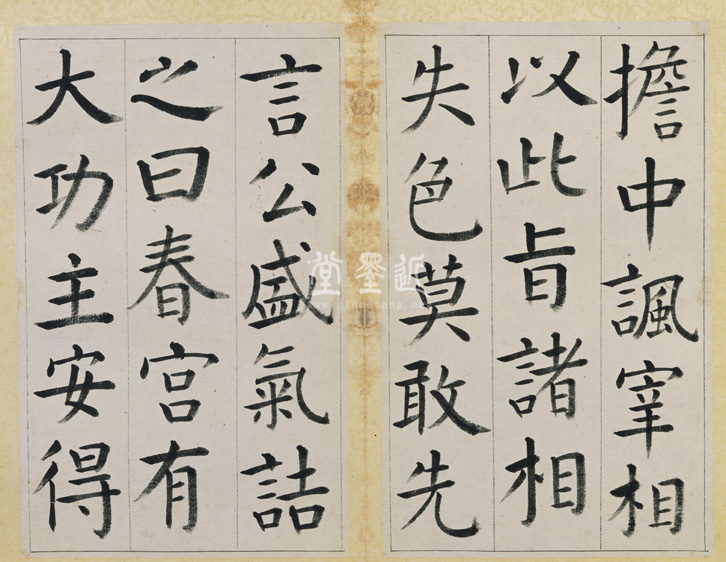 擔中諷宰相
以此旨諸相
失色莫敢先
言公盛氣詰
之曰春宮有
大功主安得
近墨堂